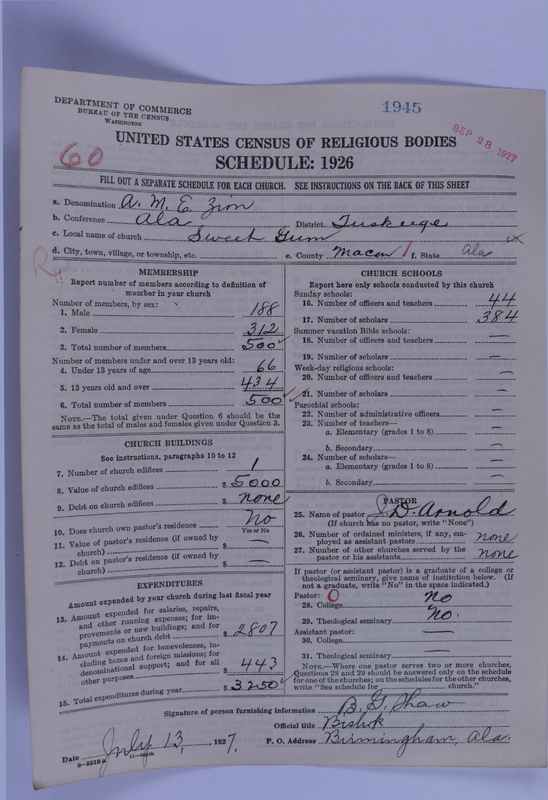 DEPARTMENT OF COMMERCE
BUREAU OF THE CENSUS
WASHINGTON
1945
SEP 28 1927
60
UNITED STATES CENSUS OF RELIGIOUS BODIES
SCHEDULE: 1926
FILL OUT A SEPARATE SCHEDULE FOR EACH CHURCH. SEE INSTRUCTIONS ON THE BACK OF THIS SHEET
a. Denomination A. M. E. Zion
b. Conference Ala District Tuskeege
c. Local name of church Sweet Gum
d. City, town, village, or township, etc. e. County Macon f. State Ala
R
MEMBERSHIP
Report number of members according to definition of
member in your church
Number of members, by sex:
1. Male 188
2. Female 312
3. Total number of members 500
Number of members under and over 13 years old:
4. Under 13 years of age 66
5. 13 years old and over 434
6. Total number of members 500
NOTE.—The total given under Question 6 should be the
same as the total of males and females given under Question 3.
CHURCH BUILDINGS
See instructions, paragraphs 10 to 12
7. Number of church edifices 1
8. Value of church edifices $ 5000
9. Debt on church edifices $ none
10. Does church own pastor's residence No
Yes or No
11. Value of pastor's residence (if owned by
church) $ —
12. Debt on pastor's residence (if owned by
church) $ —
EXPENDITURES
Amount expended by your church during last fiscal year
13. Amount expended for salaries, repairs,
and other running expenses; for im-
provements or new buildings; and for
payments on church debt $ 2807
14. Amount expended for benevolences, in-
cluding home and foreign missions; for
denominational support; and for all
other purposes $ 443
15. Total expenditures during year $ 3250
CHURCH SCHOOLS
Report here only schools conducted by this church
Sunday schools:
16. Number of officers and teachers 44
17. Number of scholars 384
Summer vacation Bible schools:
18. Number of officers and teachers —
19. Number of scholars —
Week-day religious schools:
20. Number of officers and teachers —
21. Number of scholars —
Parochial schools:
22. Number of administrative officers —
23. Number of teachers—
a. Elementary (grades 1 to 8) —
b. Secondary —
24. Number of scholars—
a. Elementary (grades 1 to 8) —
b. Secondary —
PASTOR
25. Name of pastor J. D. Arnold
(If church has no pastor, write "None")
26. Number of ordained ministers, if any, em-
ployed as assistant pastors none
27. Number of other churches served by the
pastor or his assistants none
If pastor (or assistant pastor) is a graduate of a college or
theological seminary, give name of institution below. (If
not a graduate, write "No" in the space indicated.)
Pastor: O
28. College no
29. Theological seminary no.
Assistant pastor:
30. College —
31. Theological seminary —
NOTE.—Where one pastor serves two or more churches,
Questions 28 and 29 should be answered only on the schedule
for one of the churches; on the schedules for the other churches,
write "See schedule for church."
Signature of person furnishing information B. G. Shaw
Official title Bishop
Date July 13, 1927, P. O. Address Birmingham, Ala.